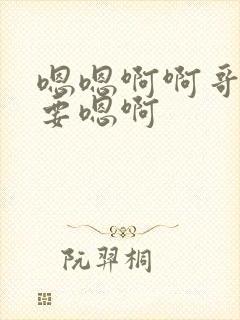 嗯嗯啊啊哥
要嗯啊
阮羿桐